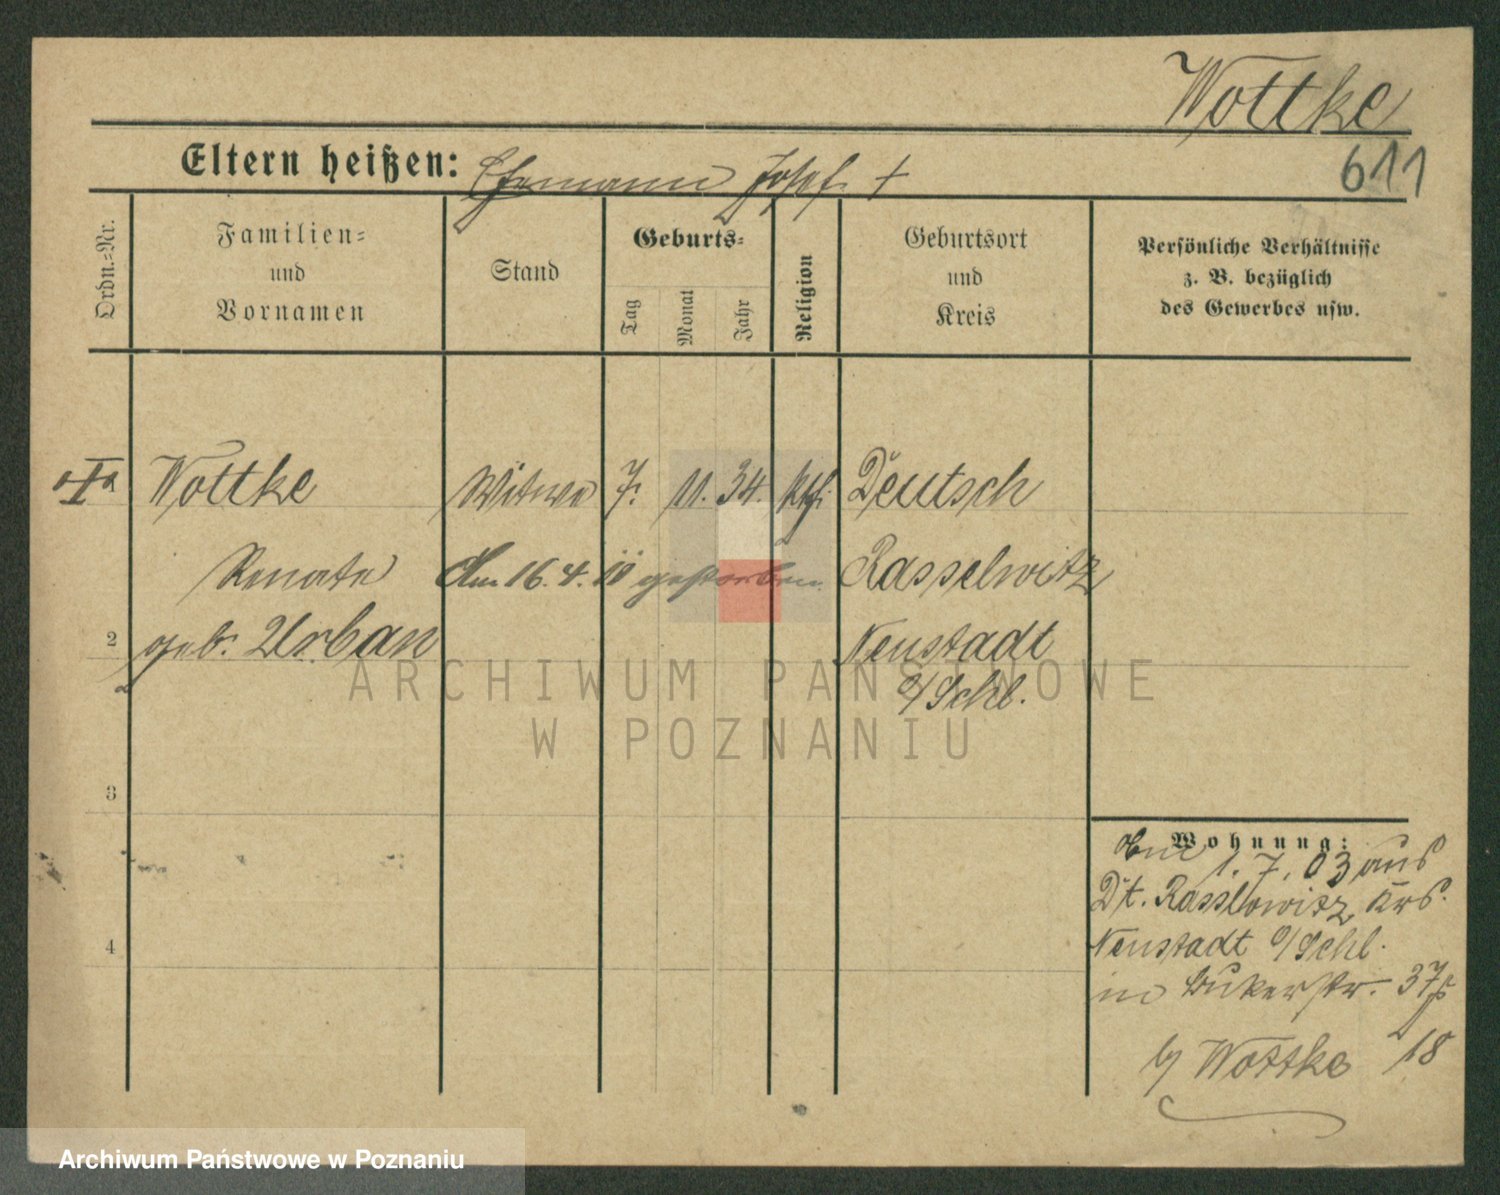 Wottke
611
Eltern heißen: Ehemann Josef +
Ordn.-Nr.
Familien-
und
Vornamen
Stand
Geburts-
Tag
Monat
Jahr
Religion
Geburtsort
und
Kreis
Persönliche Verhältnisse
z. B. bezüglich
des Gewerbes usw.
Wottke Witwe 7. 11. 34. kth. Deutsch
Renate Am 16. 4. 10 gestorben Rasselwitz
2 geb. Urban Neustadt
o/Schl.
ARCHIWUM PAŃSTWOWE
W POZNANIU
3
4
Wohnung:
am 1. 7. 03 aus
Dt. Rasslowitz, Krs.
Neustadt o/Schl.
in Bukerstr. 37
b/ Wottke 18
Archiwum Państwowe w Poznaniu